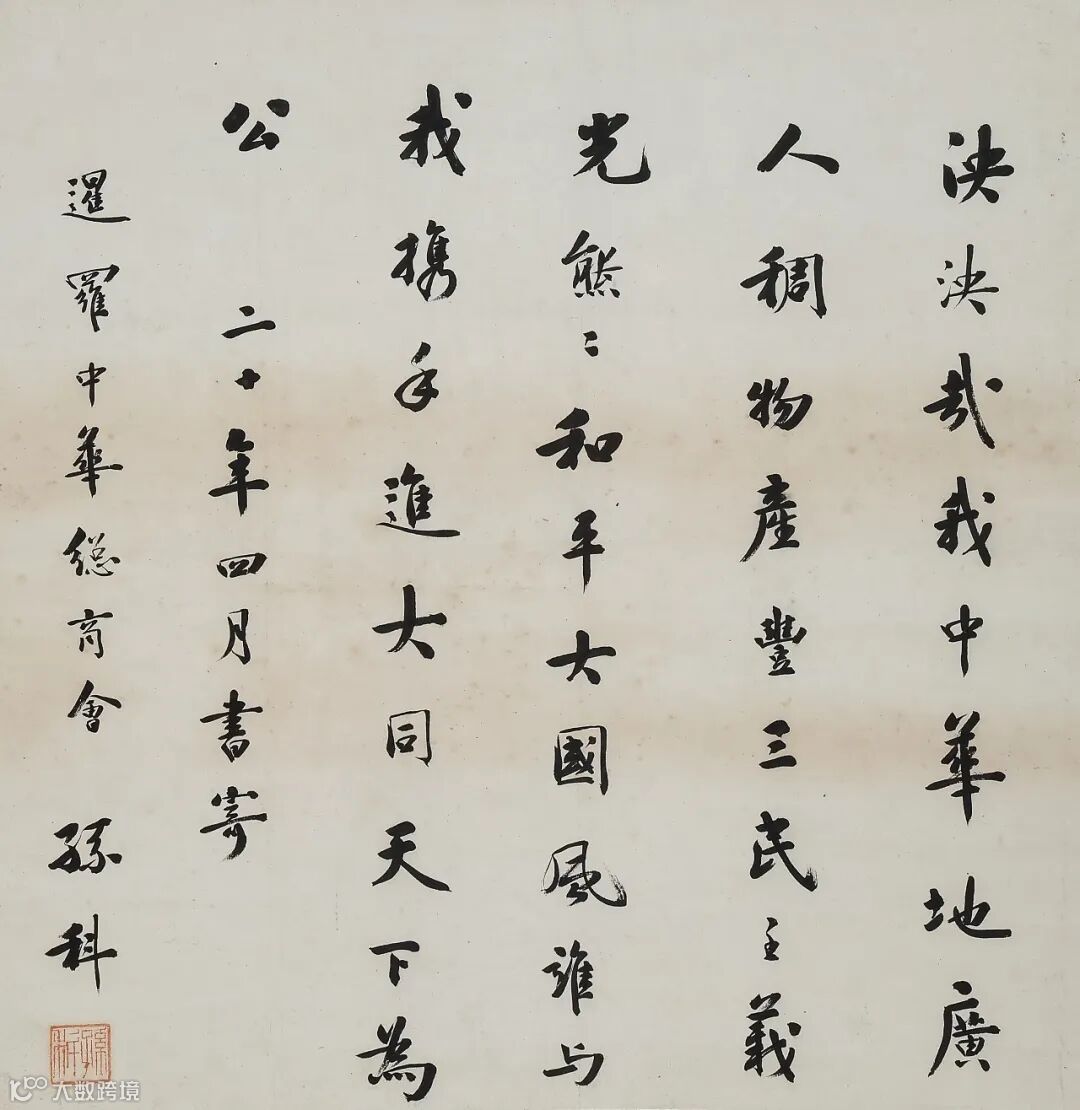 泱泱哉我中華地廣
人稠物產豐三民主義
光熊〻和平大國風誰与
我携手進大同天下為
公 二十年四月書寄
暹羅中華總商會 孫科
孫科
大数跨境